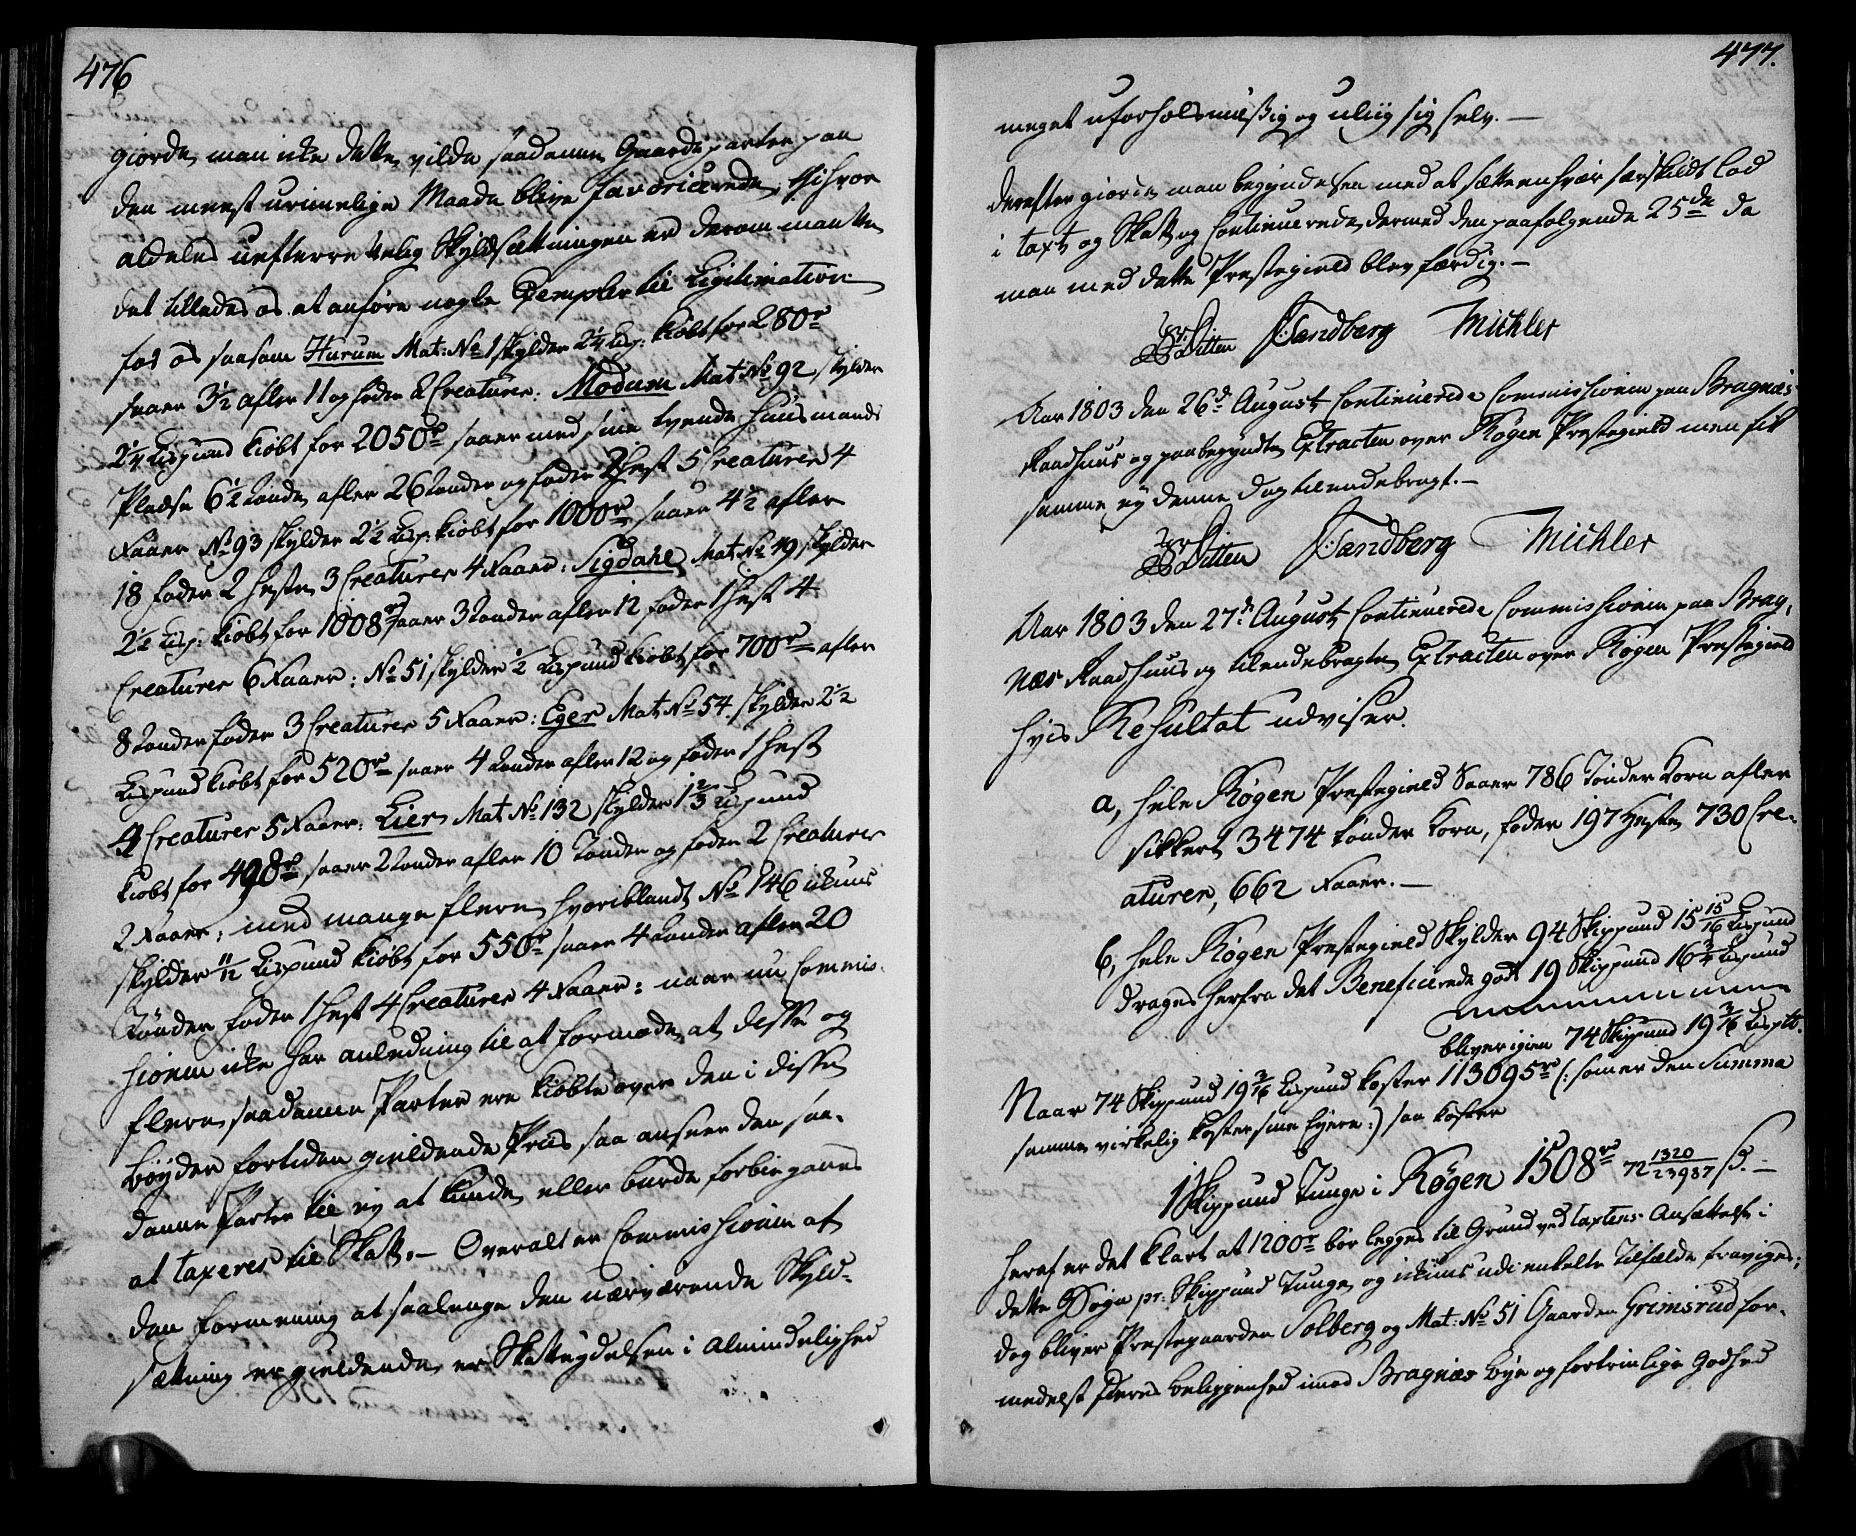 476
giorde man icke dette, vilde saadanne Gaardeparter paa
den meest urimelige Maade blive favoricerede, thi hvor
aldeles uefterrettelig Skyldsætningen er derom man ske
det tillades os at anføre nogle Exempler til Ligitimation
for os saasom Hurum Mat: No 1 skylder 2¼ Lisp: kiøbt for 280 rd
saaer 3½ afler 11 og føder 2 Creaturer: Modum Mat: No 92 skylder
2¼ Lispund kiøbt for 2050 rd saaer med sine tvende Huusmands
Pladse 6½ Tønde, afler 26 Tønder og føder 2 Hest 5 Creaturer 4
Faaer No 93 skylder 2½ Lisp: kiøbt for 1000 rd saaer 4½ afler
18 føder 2 Heste 3 Creaturer 4 Faaer: Sigdahl, Mat: No 49 skylder
2½ Lisp: kiøbt for 1008 rd saaer 3 Tønder afler 12 føder 1 Hest 4
Creaturer 6 Faaer: No 51 skylder ½ Lispund kiøbt for 700 rd afler
8 Tønder føder 3 Creaturer 5 Faaer: Eger Mat: No 54 skylder 2½
Lispund kiøbt for 520 rd saaer 4 Tønder afler 12 og føder 1 Hest
4 Creaturer 5 Faaer: Lier, Mat No 132 skylder 1⅔ Lispund
kiøbt for 498 rd saaer 2 Tønder afler 10 Tønder og føder 2 Creaturer
2 Faaer: med mange flere, hvoriblandt No 146 ickuns
skylder 11/12 Lispund kiøbt for 550 rd saaer 4 Tønder afler 20
Tønder føder 1 Hest 4 Creaturer 4 Faaer: naar nu Commis-
sionen icke har anledning til at formode, at disse og
flere saadanne Parter ere kiøbte over den i disse
Bøyder fortiden gieldende Priis saa ansees den saa-
danne Parter til ey at kunde, eller burde forbiegaaes
at taxeres til Skatt. - Overalt er Commissionen af
den formening at saalenge den nærværende Skyld-
sætning er gieldende, er Skatteydelsen i Almindelighed
477.
meget uforholdsmæssig og uliig sig selv. -
Derefter giorde man begyndelsen med at sætte enhver særskildt Lod
i taxt og Skatt og Continuerede dermed den paafølgende 25de da
man med dette Præstegield blev færdig. -
Ditten Tandberg Michler
Aar 1803 den 26de August Continuerede Commissionen paa Bragnæs
Raadhuus og paabegyndte Extracten over Røgen Præstegield men fik
samme ey denne Dag tilendebragt. -
Ditten Tandberg Michler
Aar 1803 den 27de August Continuerede Commissionen paa Brag-
næs Raadhuus og tilendebragte Extracten over Røgen Præstegield
hvis Resultat udviser.
a, hele Røgen Præstegield Saaer 786 Tønder Korn afler
sikkert 3474 Tønder Korn, føder 197 Heste, 730 Cre-
aturer, 662 Faaer. -
b, hele Røgen Præstegield Skylder 94 Skippund 15 15/16 Lispund
drages herfra det Beneficerede gods 19 Skippund 16¾ Lispund
bliver igien 74 Skippund 19 3/16 Lisptt.
Naar 74 Skippund 19 3/16 Lispund koster 113095 rd (: som er den Summa
samme virkelig koster sine Eyere :) saa koster
1 Skippund Tunge i Røgen 1508 rd 72 1320/23987 ß. -
heraf er det klart at 1200 rd bør legges til Grund ved taxtens Ansættelse i
dette Sogn pr: Skippund Tunge, og ickuns udi enkelte Tilfælde fraviges;
dog bliver Præstegaarden Solberg og Mat: No 51 Gaarden Grimsrud for-
medelst deres beliggenhed imod Bragnæs Bye og fortrinlige Godhed